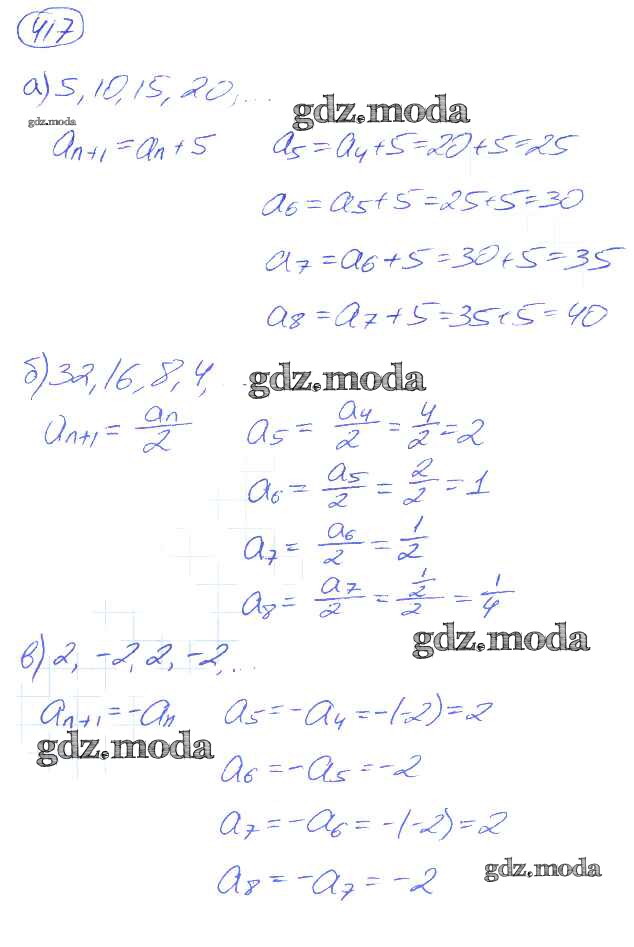 417
а) 5, 10, 15, 20, ...
gdz.moda
gdz.moda
aₙ₊₁ = aₙ + 5
a₅ = a₄ + 5 = 20 + 5 = 25
a₆ = a₅ + 5 = 25 + 5 = 30
a₇ = a₆ + 5 = 30 + 5 = 35
a₈ = a₇ + 5 = 35 + 5 = 40
б) 32, 16, 8, 4, ...
gdz.moda
aₙ₊₁ = aₙ/2
a₅ = a₄/2 = 4/2 = 2
a₆ = a₅/2 = 2/2 = 1
a₇ = a₆/2 = 1/2
a₈ = a₇/2 = (1/2)/2 = 1/4
gdz.moda
в) 2, -2, 2, -2, ...
aₙ₊₁ = -aₙ
a₅ = -a₄ = -(-2) = 2
gdz.moda
a₆ = -a₅ = -2
a₇ = -a₆ = -(-2) = 2
a₈ = -a₇ = -2
gdz.moda